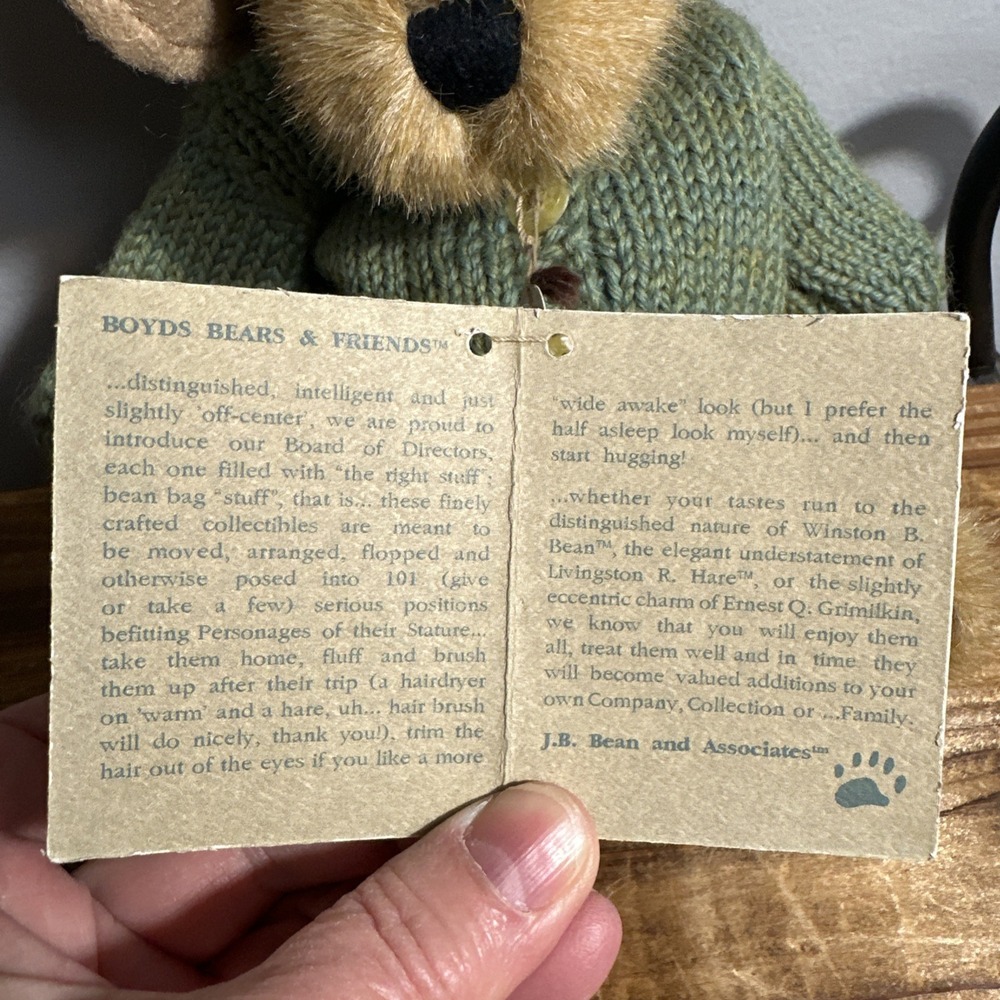 BOYDS BEARS & FRIENDS™
...distinguished, intelligent and just
slightly 'off-center', we are proud to
introduce our Board of Directors,
each one filled with "the right stuff";
bean bag "stuff", that is... these finely
crafted collectibles are meant to
be moved, arranged, flopped and
otherwise posed into 101 (give
or take a few) serious positions
befitting Personages of their Stature...
take them home, fluff and brush
them up after their trip (a hairdryer
on 'warm' and a hare, uh... hair brush
will do nicely, thank you!), trim the
hair out of the eyes if you like a more
"wide awake" look (but I prefer the
half asleep look myself)... and then
start hugging!
...whether your tastes run to the
distinguished nature of Winston B.
Bean™, the elegant understatement of
Livingston R. Hare™, or the slightly
eccentric charm of Ernest Q. Grimilkin,
we know that you will enjoy them
all, treat them well and in time they
will become valued additions to your
own Company, Collection or ...Family.
J.B. Bean and Associates™